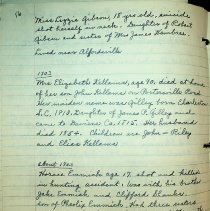 Miss Lizzie Gibson, 18 yrs old, suicide
shot herself in neck. Daughter of Robert
Gibson and sister of Mrs James Hambree.
Lived near Alfordsville
1903
Mrs Elizabeth Kellams, age 90, died at home
of her son John Kellams on Portersville Road
Her maiden name was Gilley born Charleston
S.C. 1813, Daughter of James P. Gilley and
came to Daviess Co. 1815. Her husband
died 1864. Children are John - Riley
and Eliza Kellams
About 1903
Horace Cummick age 17, shot and killed
in hunting accident, was with his brother
Jake Cummick and Clifford
son of Cummick. Had three sisters